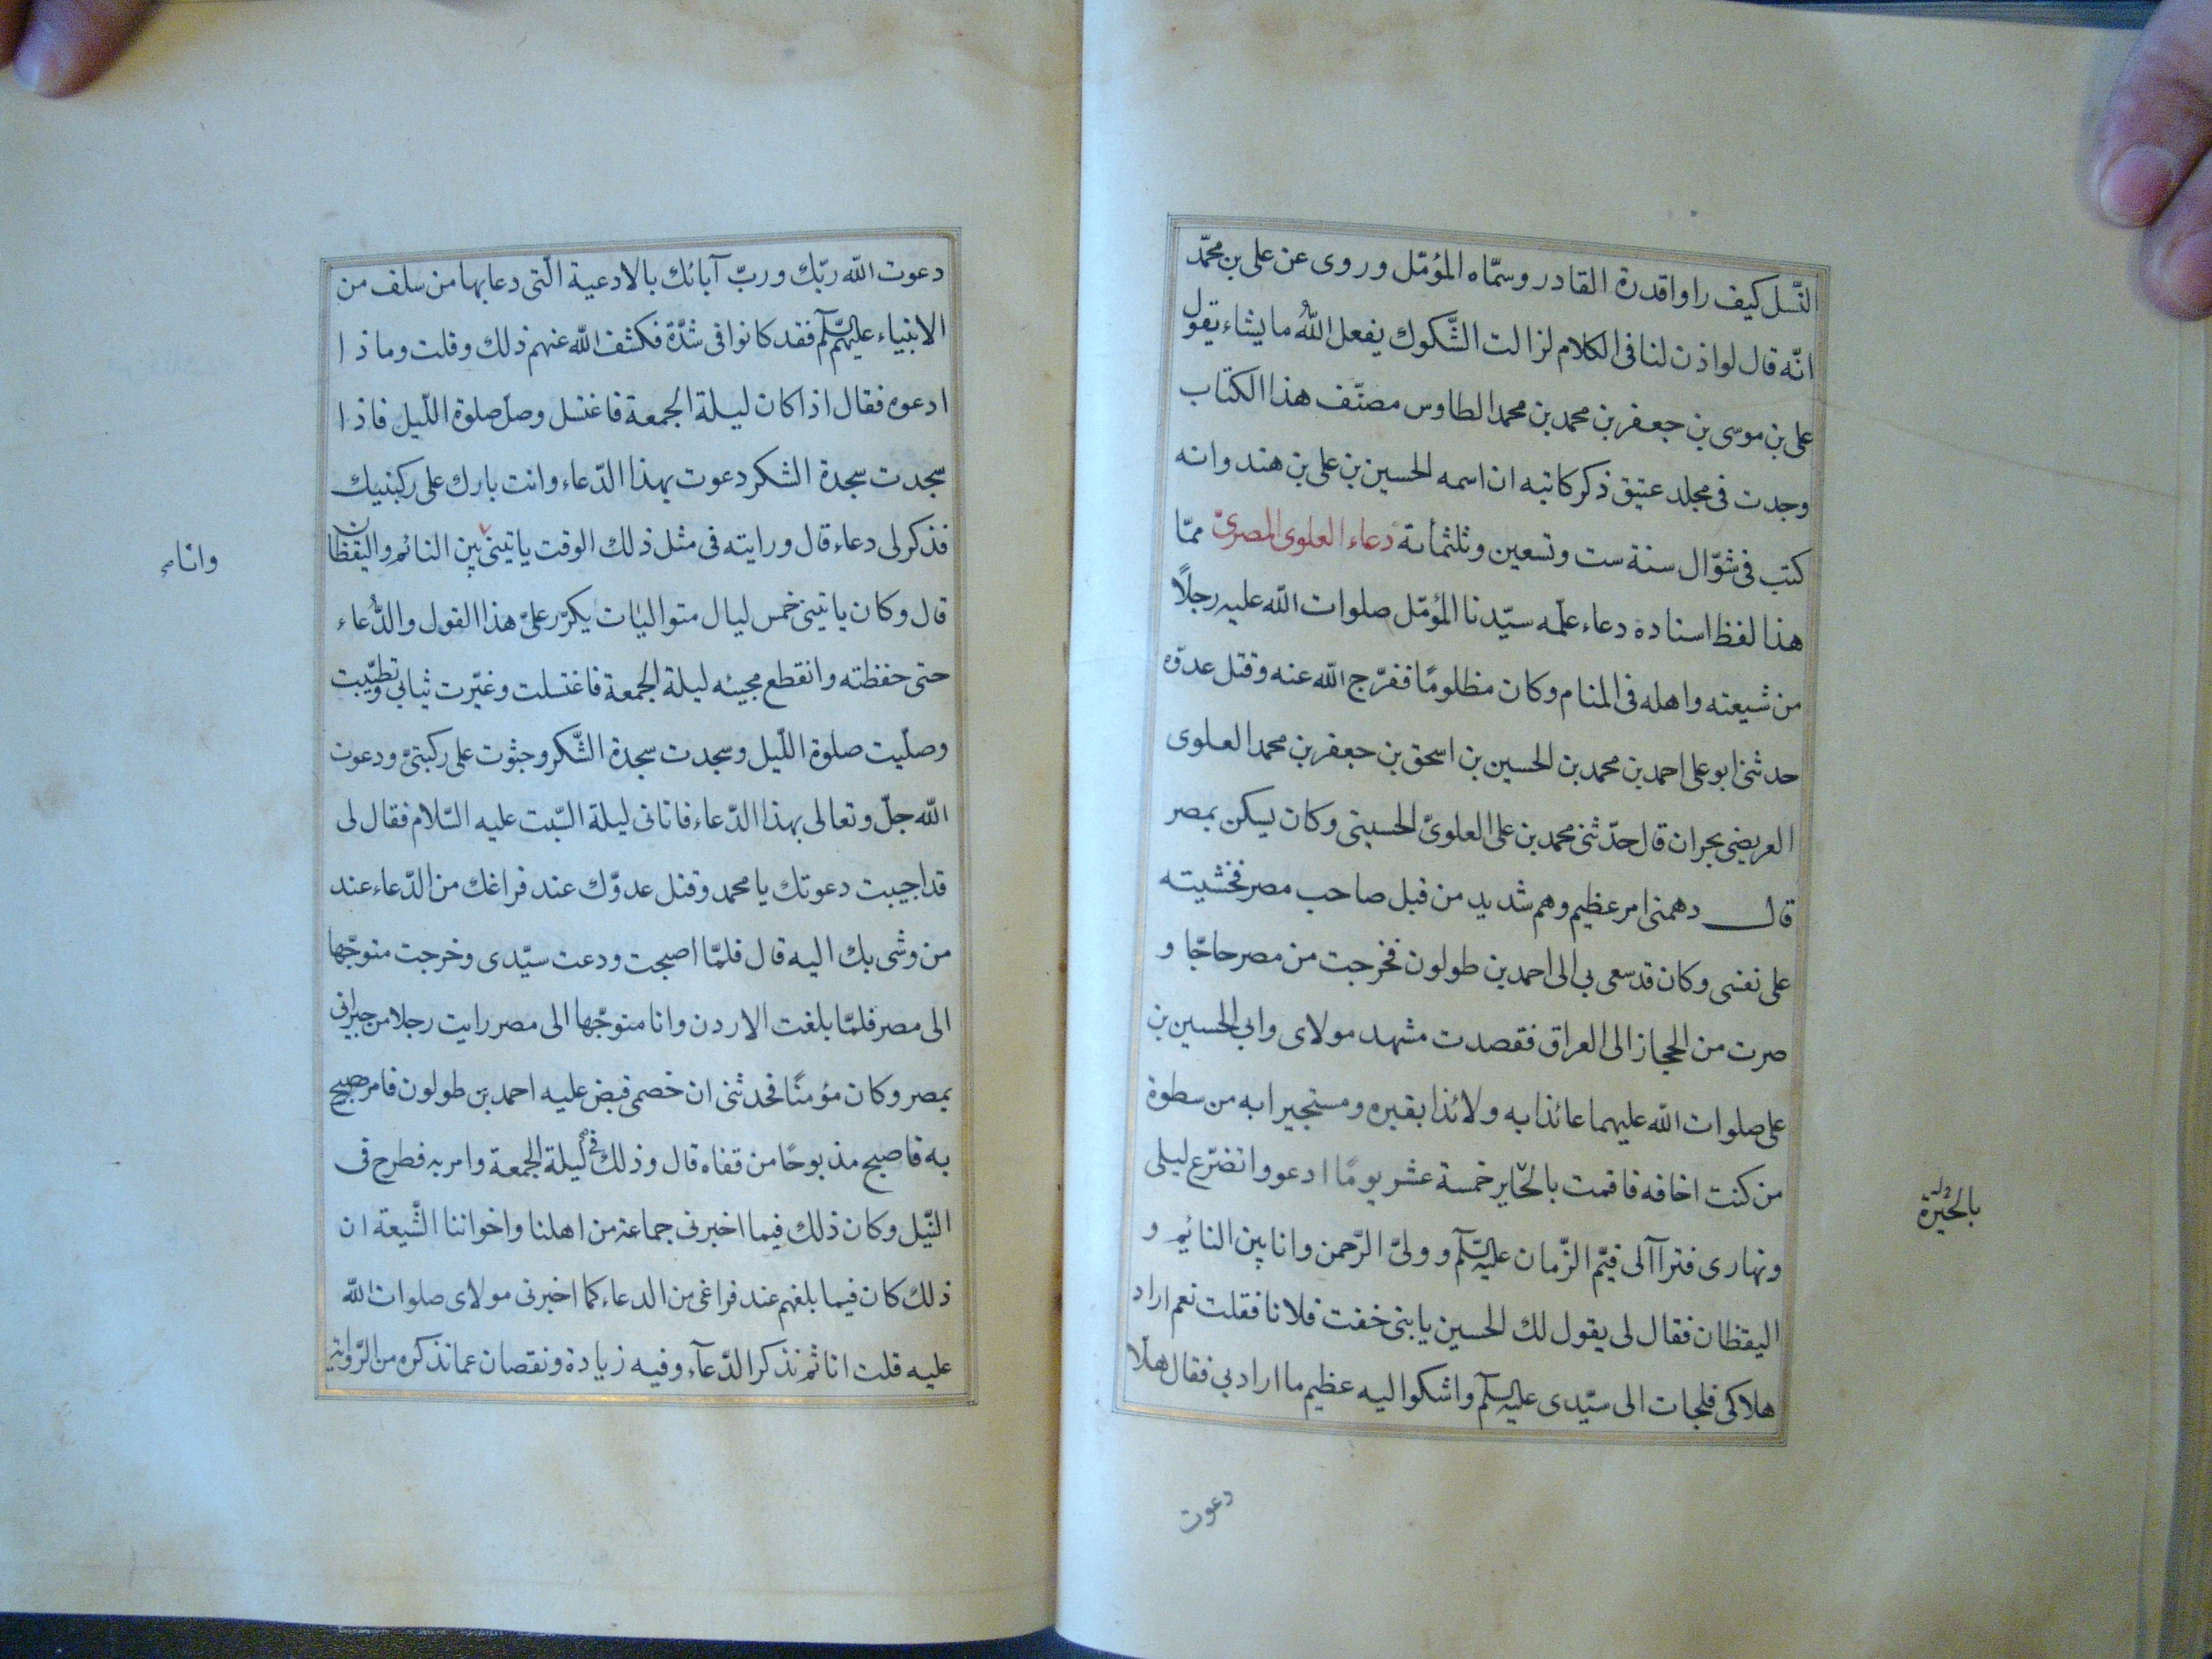 النّسل كيف راوا قدرة القادر وسمّاه المؤمّل وروى عن على بن محمّد
انّه قال لو اذن لنا فى الكلام لزالت الشّكوك يفعل اللهُ ما يشاء يقول
على بن موسى بن جعفر بن محمد بن محمد الطاوس مصنّف هذا الكتاب
وجدت فى مجلد عتيق ذكر كاتبه ان اسمه الحسين بن على بن هند وانه
كتب فى شوّال سنة ست وتسعين وثلثمائة دعاء العلوى المصرىّ ممّا
هذا لفظ اسناده دعاء علّمه سيّدنا المؤمّل صلوات الله عليه رجلًا
من شيعته واهله فى المنام وكان مظلومًا ففرّج الله عنه وقتل عدوّه
حدثنى ابو على احمد بن محمد بن الحسين بن اسحق بن جعفر بن محمد العلوى
العريضى بحران قال حدّثنى محمد بن على العلوىّ الحسينى وكان يسكن بمصر
قال دهمنى امر عظيم وهم شديد من قبل صاحب مصر فخشيته
على نفسى وكان قد سعى بى الى احمد بن طولون فخرجت من مصر حاجّا و
صرت من الحجاز الى العراق فقصدت مشهد مولاى وابى الحسين بن
على صلوات الله عليهما عائذا به ولائذا بقبره ومستجيرا به من سطوة
من كنت اخافه فاقمت بالحاير خمسة عشر يومًا ادعو واتضرّع ليلى
بالحيرة
ونهارى فترآآ لى قيّم الزّمان عليه السّلم وولىّ الرّحمن وانا بين النائم و
اليقظان فقال لى يقول لك الحسين يا بنى خفت فلانا فقلت نعم اراد
هلاكى فلجات الى سيّدى عليه السّلم واشكو اليه عظيم ما اراد بى فقال هلّا
دعوت
دعوت الله ربّك وربّ آبائك بالادعية الّتى دعا بها من سلف من
الانبياء عليهم السّلم فقد كانوا فى شدّة فكشف الله عنهم ذلك وقلت وماذا
ادعوه فقال اذا كان ليلة الجمعة فاغتسل وصلّ صلوة اللّيل فاذا
سجدت سجدة الشكر دعوت بهذا الدّعاء وانت بارك على ركبتيك
فذكر لى دعاء قال ورايته فى مثل ذلك الوقت ياتينى بين النائم واليقظان
وانا
قال وكان ياتينى خمس ليال متواليات يكرّر علىّ هذا القول والدُّعاء
حتى حفظته وانقطع مجيئه ليلة الجمعة فاغتسلت وغيّرت ثيابى وتطيّبت
وصلّيت صلوة اللّيل وسجدت سجدة الشّكر وجثوت على ركبتىّ ودعوت
الله جلّ وتعالى بهذا الدّعاء فاتانى ليلة السّبت عليه السّلام فقال لى
قد اجيبت دعوتك يا محمد وقتل عدوّك عند فراغك من الدّعاء عند
من وشى بك اليه قال فلمّا اصبحت ودعت سيّدى وخرجت متوجّها
الى مصر فلمّا بلغت الاردن وانا متوجّها الى مصر رايت رجلا من جيرانى
بمصر وكان مؤمنًا فحدثنى ان خصمى قبض عليه احمد بن طولون فامر
به فاصبح مذبوحًا من قفاه قال وذلك فى ليلة الجمعة وامر به فطرح فى
النّيل وكان ذلك فيما اخبرنى جماعة من اهلنا واخواننا الشّيعة ان
ذلك كان فيما بلغهم عند فراغى من الدعاء كما اخبرنى مولاى صلوات الله
عليه قلت انا ثم نذكر الدّعآء وفيه زيادة ونقصان عما نذكره من الرّواية